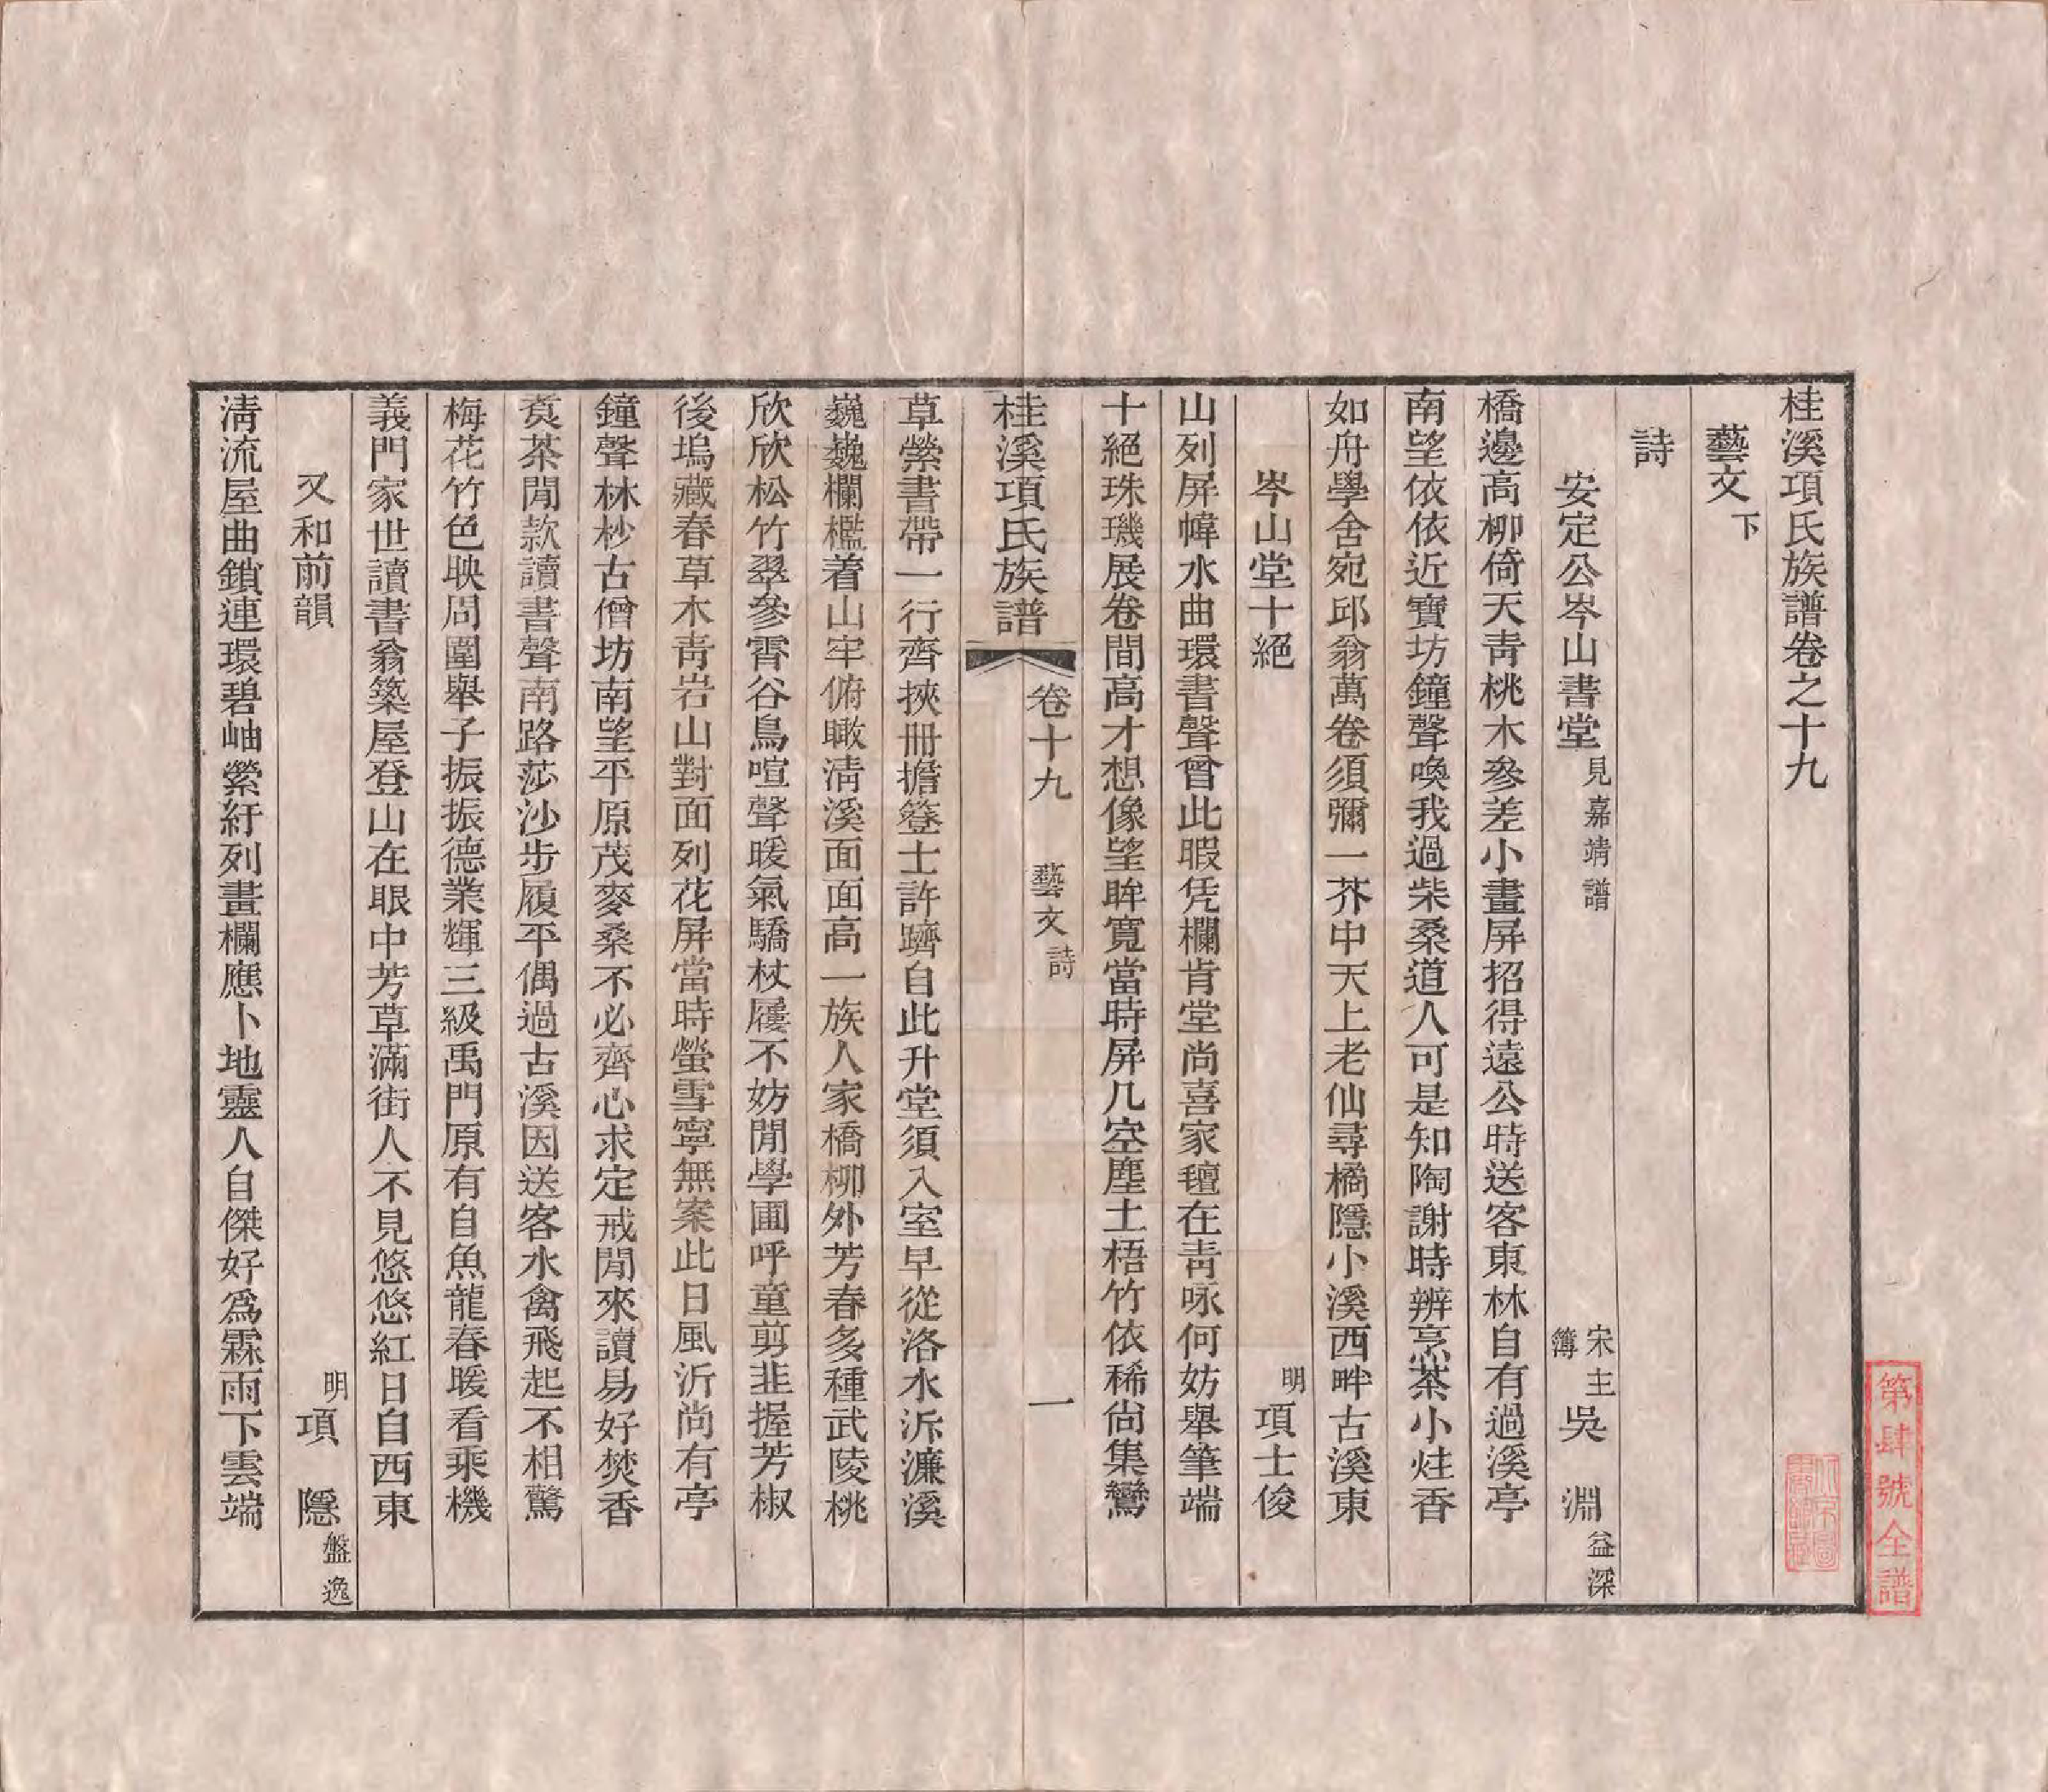 桂溪項氏族譜卷之十九
藝文下
詩
安定公岑山書堂見嘉靖譜 宋主簿吳 淵益深
橋邊高柳倚天靑桃木參差小畫屏招得遠公時送客東林自有過溪亭
南望依依近寶坊鐘聲喚我過柴桑道人可是知陶謝時辨烹茶小炷香
如舟學舍宛邱翁萬卷須彌一芥中天上老仙尋橘隱小溪西畔古溪東
岑山堂十絕 明項士俊
山列屏幃水曲環書聲曾此暇凭欄肯堂尚喜家氊在靑咏何妨舉筆端
十絕珠璣展卷間高才想像望眸寬當時屏几空塵土梧竹依稀尙集鸞
桂溪項氏族譜 卷十九 藝文詩 一
草縈書帶一行齊挾冊擔簦士許躋自此升堂須入室早從洛水泝濂溪
巍巍欄檻着山牢俯瞰淸溪面面高一族人家橋柳外芳春多種武陵桃
欣欣松竹翠參霄谷鳥喧聲暖氣驕杖屨不妨閒學圃呼童剪韭握芳椒
後塢藏春草木靑岩山對面列花屏當時螢雪寧無案此日風沂尚有亭
鐘聲林杪古僧坊南望平原茂麥桑不必齊心求定戒閒來讀易好焚香
煑茶閒款讀書聲南路莎沙步履平偶過古溪因送客水禽飛起不相驚
梅花竹色映周圍舉子振振德業輝三級禹門原有自魚龍春暖看乘機
義門家世讀書翁築屋登山在眼中芳草滿街人不見悠悠紅日自西東
又和前韻 明項 隱盤逸
淸流屋曲鎖連環碧岫縈紆列畫欄應卜地靈人自傑好爲霖雨下雲端
第肆號全譜